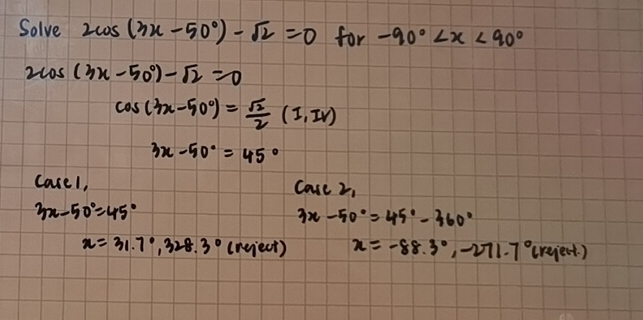 Solve 2cos (3x-50°) - √2 = 0 for -90° < x < 90°
2cos (3x-50°) - √2 = 0
cos (3x-50°) = √2/2 (I, IV)
3x-50° = 45°
Case 1,
3x-50°=45°
x = 31.7°, 328.3° (reject)
Case 2,
3x-50° = 45° - 360°
x = -88.3°, -271.7° (reject)